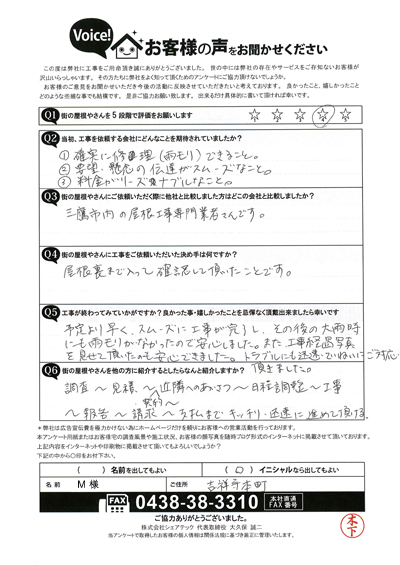 Voice! お客様の声をお聞かせください
この度は弊社に工事をご用命頂き誠にありがとうございました。世の中には弊社の存在やサービスをご存知ないお客様が
沢山いらっしゃいます。その方たちに弊社をよく知って頂くためのアンケートにご協力頂けないでしょうか。
お客様のご意見をお聞かせいただき今後の活動に反映させていただきたいと考えております。良かったこと、嬉しかったこと
どのような些細な事でも結構です。是非ご協力お願い致します。出来るだけ具体的に書いて頂ければ幸いです。
Q1 街の屋根やさんを5段階で評価をお願いします ☆ ☆ ☆ ☆ ☆
Q2 当初、工事を依頼する会社にどんなことを期待されていましたか?
① 確実に修理(雨モリ)できること。
② 要望・懸念の伝達がスムーズなこと。
③ 料金がリーズナブルなこと。
Q3 街の屋根やさんにご依頼いただく際に他社と比較しました方はどこの会社と比較しましたか?
三鷹市内の屋根工事専門業者さんです。
Q4 街の屋根やさんに工事をご依頼いただいた決め手は何ですか?
屋根裏まで入って確認して頂いたことです。
Q5 工事が終わってみていかがですか?良かった事・嬉しかったことを忌憚なく頂戴出来ましたら幸いです
予定より早く、スムーズに工事が完了し、その後の大雨時
にも雨モリがなかったので安心しました。また、工事経過写真
を見せて頂いたのも安心できました。トラブルにも迅速でていねいにご対応
頂きました。
Q6 街の屋根やさんを他の方に紹介するとしたらなんと紹介しますか?
調査〜見積〜契約〜近隣へのあいさつ〜日程調整〜工事
〜報告〜請求〜支払まで キッチリ・迅速に進めて頂ける。
＊弊社は広告宣伝費を極力かけない為にホームページだけを頼りにお客様への営業活動を行っております。
本アンケート用紙またはお客様宅の調査風景や施工状況、お客様の顔写真を随時ブログ形式のインターネットに掲載させて頂いております。
上記内容をインターネットや印刷物に掲載させて頂いてもよろしいでしょうか?
下記の中から○印をお付け下さい。
( ) 名前を出してもよい (○) イニシャルなら出してもよい
名前 M 様 ご住所 吉祥寺本町
FAX 0438-38-3310 本社直通 FAX番号
ご協力ありがとうございました。
株式会社シェアテック 代表取締役 大久保 誠二
当アンケートで取得したお客様の個人情報は関係法規に基づき厳正に管理いたします。
木下